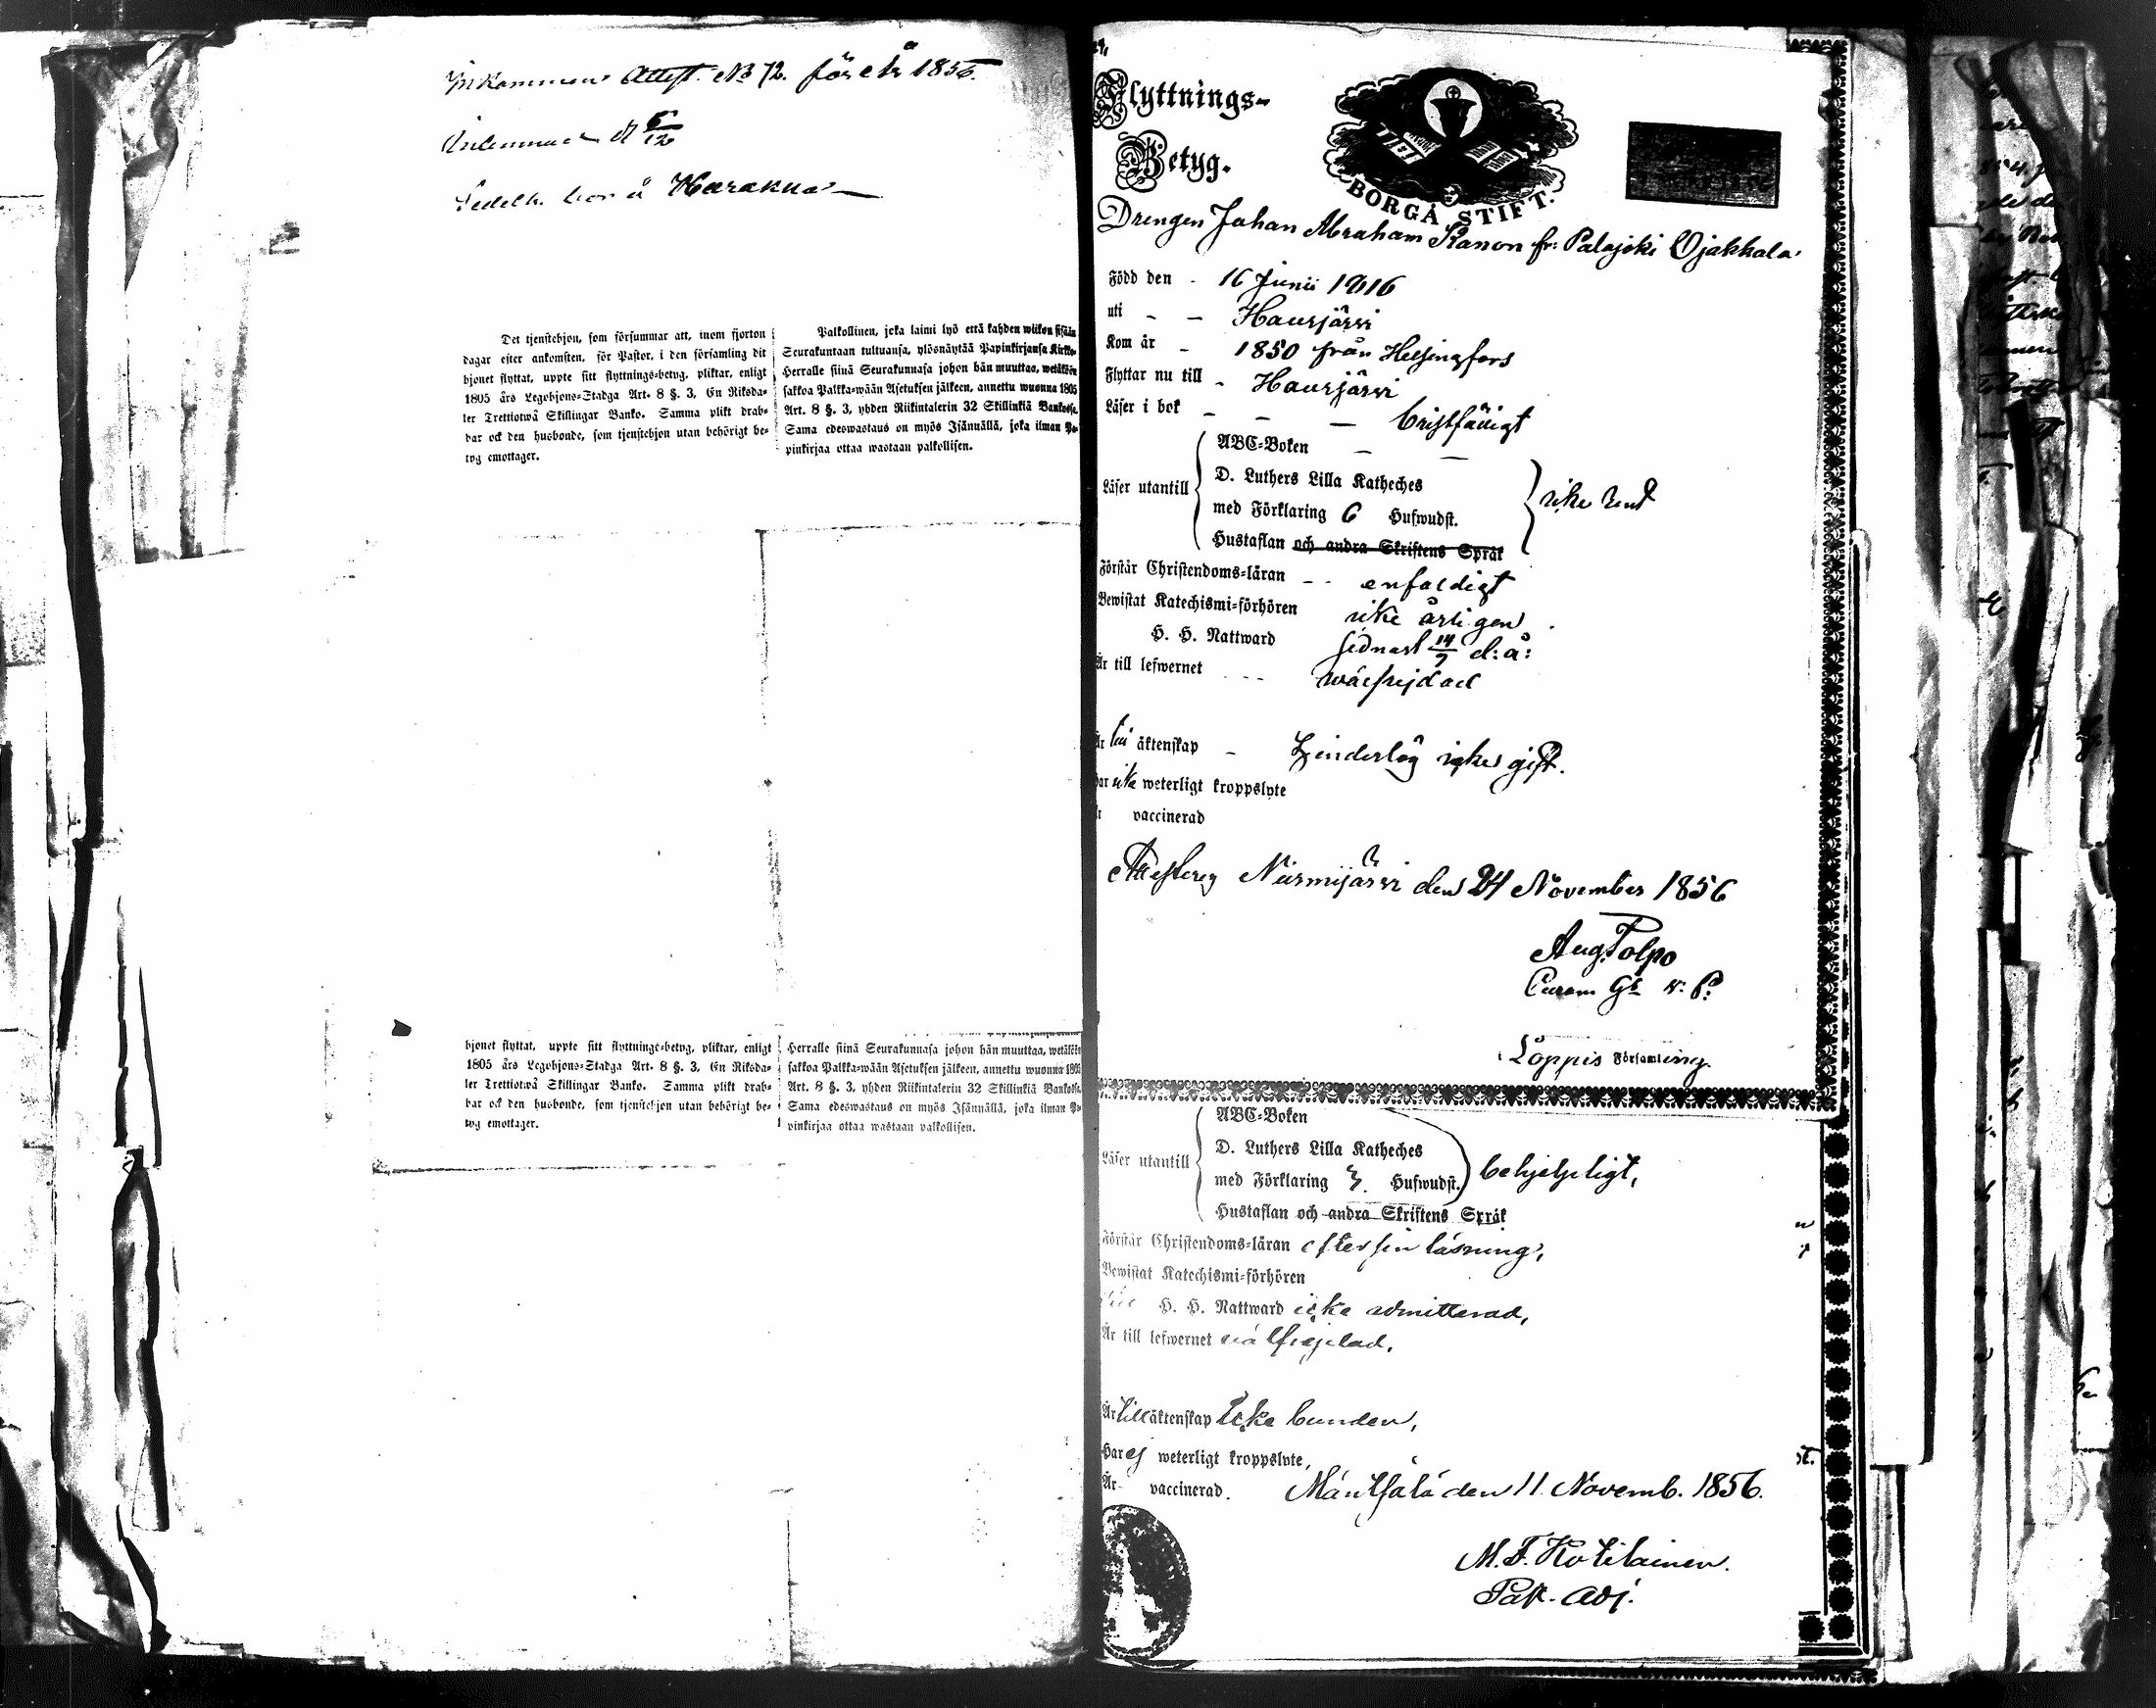 Inkommen Attest. No 72. för år 1856.
d 5/12
å Harakka
Det tjenstehjon, som försummar att, inom fjorton
dagar efter ankomsten, för Pastor, i den församling dit
hjonet flyttat, uppte sitt flyttnings-betyg, pliktar, enligt
1805 års Legohjons-Stadga Art. 8 §. 3, En Riksda-
ler Trettiotwå Skillingar Banko. Samma plikt drab-
bar ock den husbonde, som tjenstehjon utan behörigt be-
tyg emottager.
Palkollinen, joka laimi lyö että kahden wiikon sisään
Seurakuntaan tultuansa, ylösnäytää Papinkirjansa Kirkko-
Herralle siinä Seurakunnasa johon hän muuttaa, wetäköön
sakkoa Palkka-wään Asetuksen jälkeen, annettu wuonna 1805
Art. 8 §. 3, yhden Riikintalerin 32 Skillinkiä Bankossa.
Sama edeswastaus on myös Isännällä, joka ilman Pa-
pinkirjaa ottaa wastaan palkollisen.
hjonet flyttat, uppte sitt flyttnings-betyg, pliktar, enligt
1805 års Legohjons-Stadga Art. 8 §. 3, En Riksda-
ler Trettiotwå Skillingar Banko. Samma plikt drab-
bar ock den husbonde, som tjenstehjon utan behörigt be-
tyg emottager.
Herralle siinä Seurakunnasa johon hän muuttaa, wetäköön
sakkoa Palkka-wään Asetuksen jälkeen, annettu wuonna 1805
Art. 8 §. 3, yhden Riikintalerin 32 Skillinkiä Bankossa.
Sama edeswastaus on myös Isännällä, joka ilman Pa-
pinkirjaa ottaa wastaan palkollisen.
Flyttnings-
Betyg.
BORGÅ STIFT.
Drengen Johan Abraham Kanon fr: Palajoki Ojakkala
Född den - 16 Junii 1816
uti - - Hausjärvi
Kom år - 1850 från Helsingfors
Flyttar nu till - Hausjärvi
Läser i bok - - - bristfälligt
ABC-Boken - -
D. Luthers Lilla Katheches
Läser utantill
med Förklaring 6 Hufwudst.
icke rent
Hustaflan och andra Skriftens Språk
Förstår Christendoms-läran - - enfaldigt
Bewistat Katechismi-förhören icke årligen
H. H. Nattward sednast 14/7 d: å:
Är till lefwernet - - - wälfrejdad
Är till äktenskap - hinderlös icke gift.
Har icke weterligt kroppslyte
Är vaccinerad
Attesterer Nurmijärvi den 24 November 1856
Aug. Polpo
Löppis Församling.
ABC-Boken
D. Luthers Lilla Katheches
Läser utantill
med Förklaring 3. Hufwudst.
behjelpligt,
Hustaflan och andra Skriftens Språk
Förstår Christendoms-läran efter sin läsning,
Bewistat Katechismi-förhören
Till H. H. Nattward icke admitterad,
Är till lefwernet wälfrejdad,
Är till äktenskap icke bunden,
Har ej weterligt kroppslyte,
Är vaccinerad. Mäntsälä den 11. Novemb. 1856.
M. F. Kotilainen.
Past. Adj.